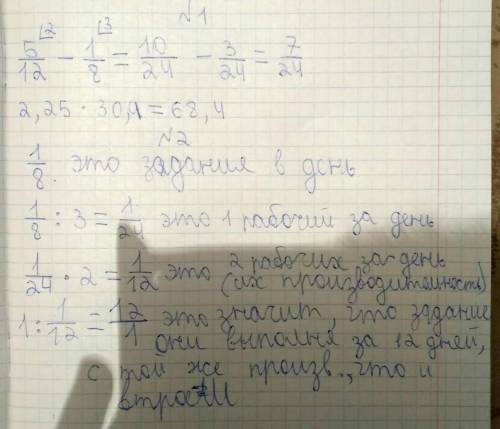 №1
5/12 ⌊2 - 1/8 ⌊3 = 10/24 - 3/24 = 7/24
2,25 · 30,4 = 68,4
№2
1/8. это задания в день
1/8 : 3 = 1/24 это 1 рабочий за день
1/24 · 2 = 1/12 это 2 рабочих за день
(их производительность)
1 : 1/12 = 12/1 это значит, что задание
они выполня за 12 дней,
с той же произв., что и
втроем